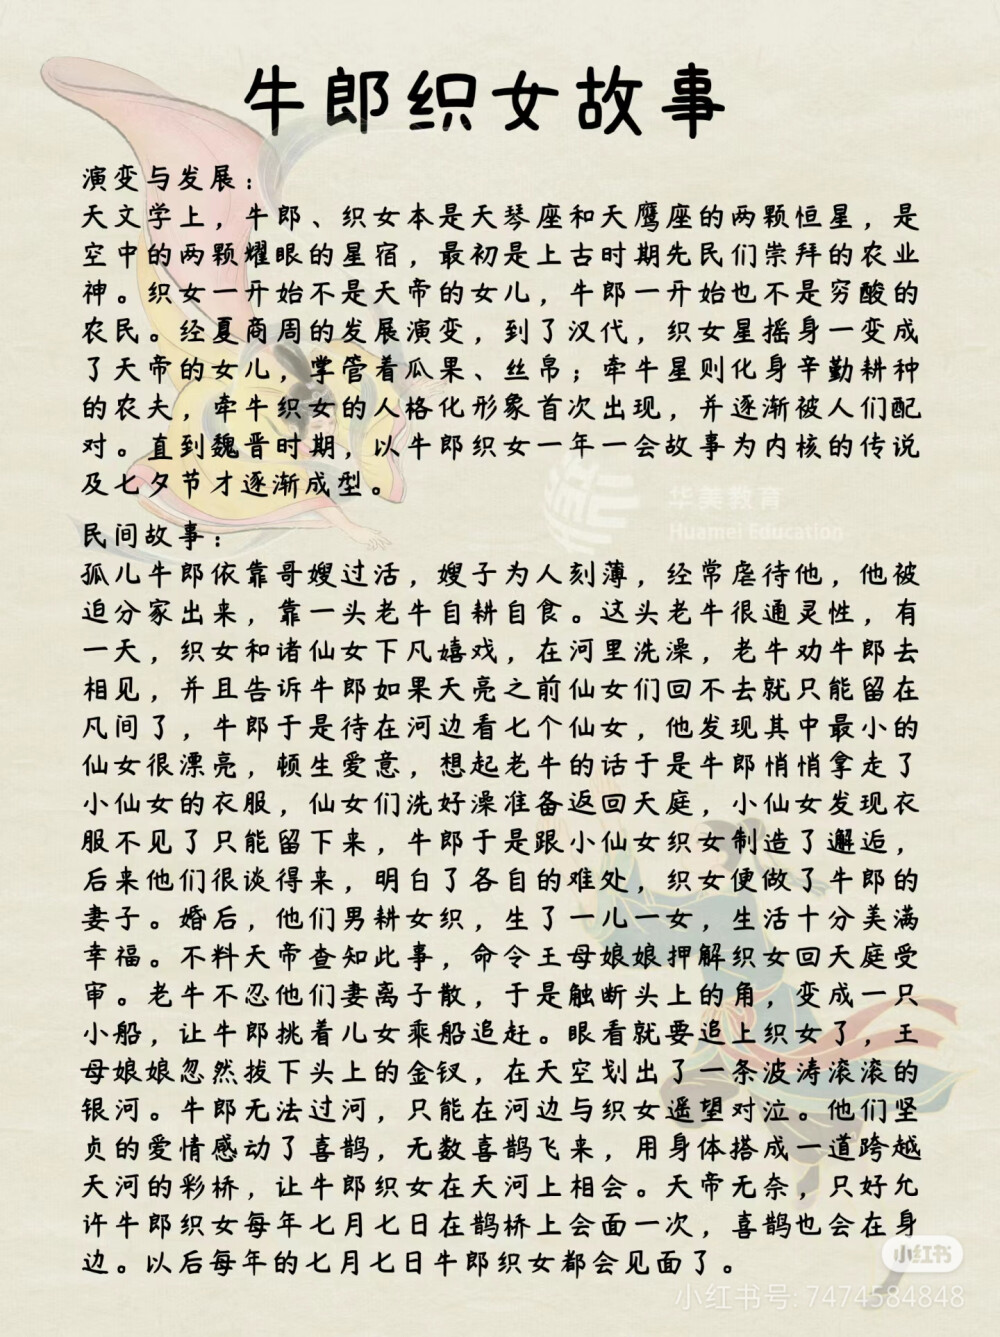 牛郎织女故事
演变与发展：
天文学上，牛郎、织女本是天琴座和天鹰座的两颗恒星，是
空中的两颗耀眼的星宿，最初是上古时期先民们崇拜的农业
神。织女一开始不是天帝的女儿，牛郎一开始也不是穷酸的
农民。经夏商周的发展演变，到了汉代，织女星摇身一变成
了天帝的女儿，掌管着瓜果、丝帛；牵牛星则化身辛勤耕种
的农夫，牵牛织女的人格化形象首次出现，并逐渐被人们配
对。直到魏晋时期，以牛郎织女一年一会故事为内核的传说
及七夕节才逐渐成型。
华美教育
Huamei Education
民间故事：
孤儿牛郎依靠哥嫂过活，嫂子为人刻薄，经常虐待他，他被
迫分家出来，靠一头老牛自耕自食。这头老牛很通灵性，有
一天，织女和诸仙女下凡嬉戏，在河里洗澡，老牛劝牛郎去
相见，并且告诉牛郎如果天亮之前仙女们回不去就只能留在
凡间了，牛郎于是待在河边看七个仙女，他发现其中最小的
仙女很漂亮，顿生爱意，想起老牛的话于是牛郎悄悄拿走了
小仙女的衣服，仙女们洗好澡准备返回天庭，小仙女发现衣
服不见了只能留下来，牛郎于是跟小仙女织女制造了邂逅，
后来他们很谈得来，明白了各自的难处，织女便做了牛郎的
妻子。婚后，他们男耕女织，生了一儿一女，生活十分美满
幸福。不料天帝查知此事，命令王母娘娘押解织女回天庭受
审。老牛不忍他们妻离子散，于是触断头上的角，变成一只
小船，让牛郎挑着儿女乘船追赶。眼看就要追上织女了，王
母娘娘忽然拔下头上的金钗，在天空划出了一条波涛滚滚的
银河。牛郎无法过河，只能在河边与织女遥望对泣。他们坚
贞的爱情感动了喜鹊，无数喜鹊飞来，用身体搭成一道跨越
天河的彩桥，让牛郎织女在天河上相会。天帝无奈，只好允
许牛郎织女每年七月七日在鹊桥上会面一次，喜鹊也会在身
边。以后每年的七月七日牛郎织女都会见面了。
小红书
小红书号: 7474584848